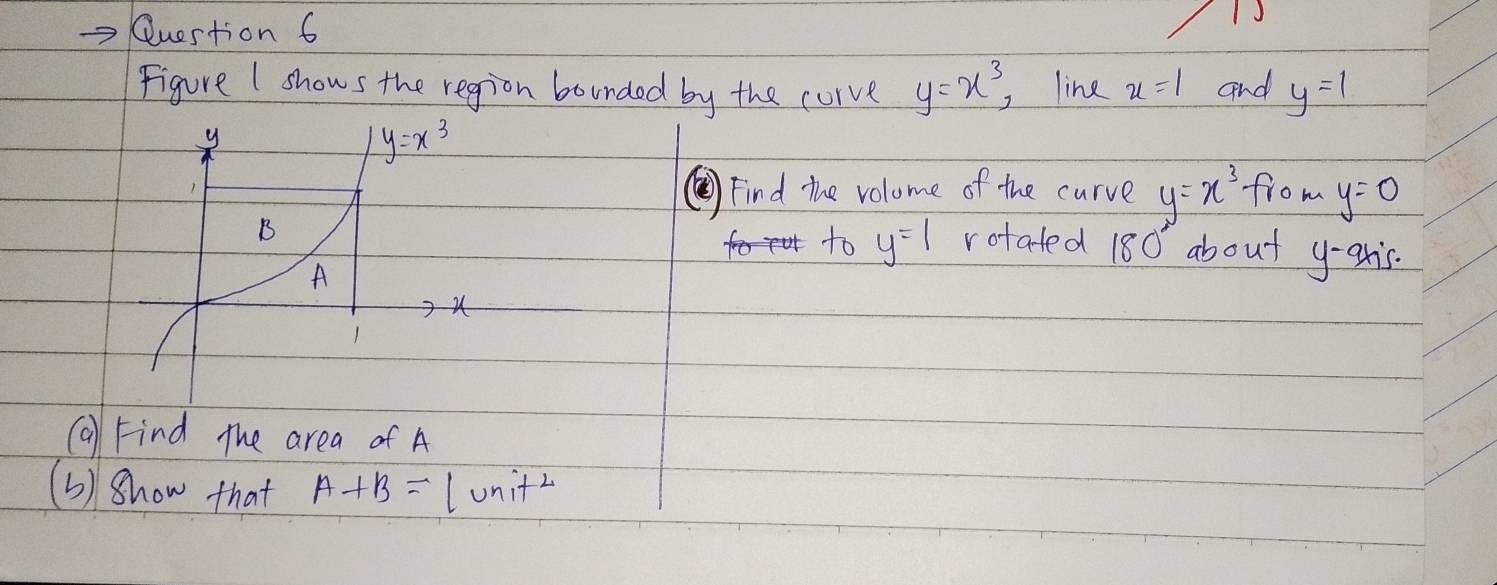 → Question 6
Figure 1 shows the region bounded by the curve y=x³, line x=1 and y=1
y
y=x³
1
B
A
x
1
(c) Find the volume of the curve y=x³ from y=0
to y=1 rotated 180° about y-axis.
(a) Find the area of A
(b) Show that A+B=1 unit²